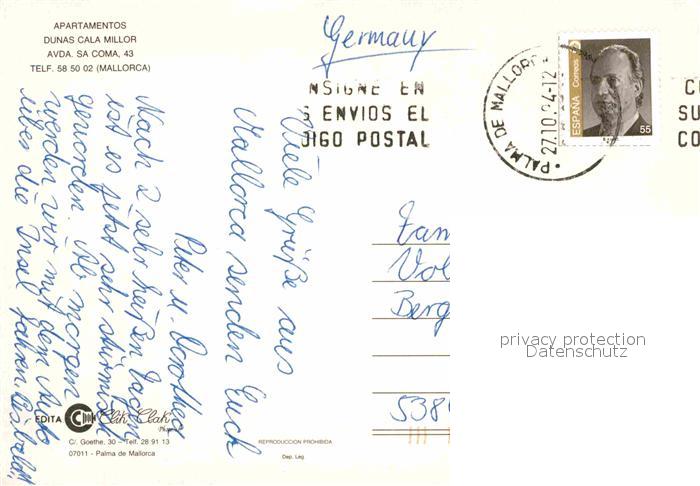 APARTAMENTOS
DUNAS CALA MILLOR
AVDA. SA COMA, 43
TELF. 58 50 02 (MALLORCA)
Germany
NSIGNE EN
S ENVIOS EL
DIGO POSTAL
PALMA DE MALLORCA
27.10.94-12
ESPAÑA
Correos
55
C
SU
CO
Viele Grüße aus
Mallorca senden Euch
Peter u. Dorothea
Nach 2 sehr heißen Tagen
ist es jetzt sehr stürmisch
geworden. Ab morgen
werden wir mit dem Auto
über die Insel fahren. Bis bald.
Fam
Vol
Berg
538
privacy protection
Datenschutz
EDITA Clik-Clak
C/. Goethe. 30 - Telf. 28 91 13
07011 - Palma de Mallorca
REPRODUCCION PROHIBIDA
Dep. Leg